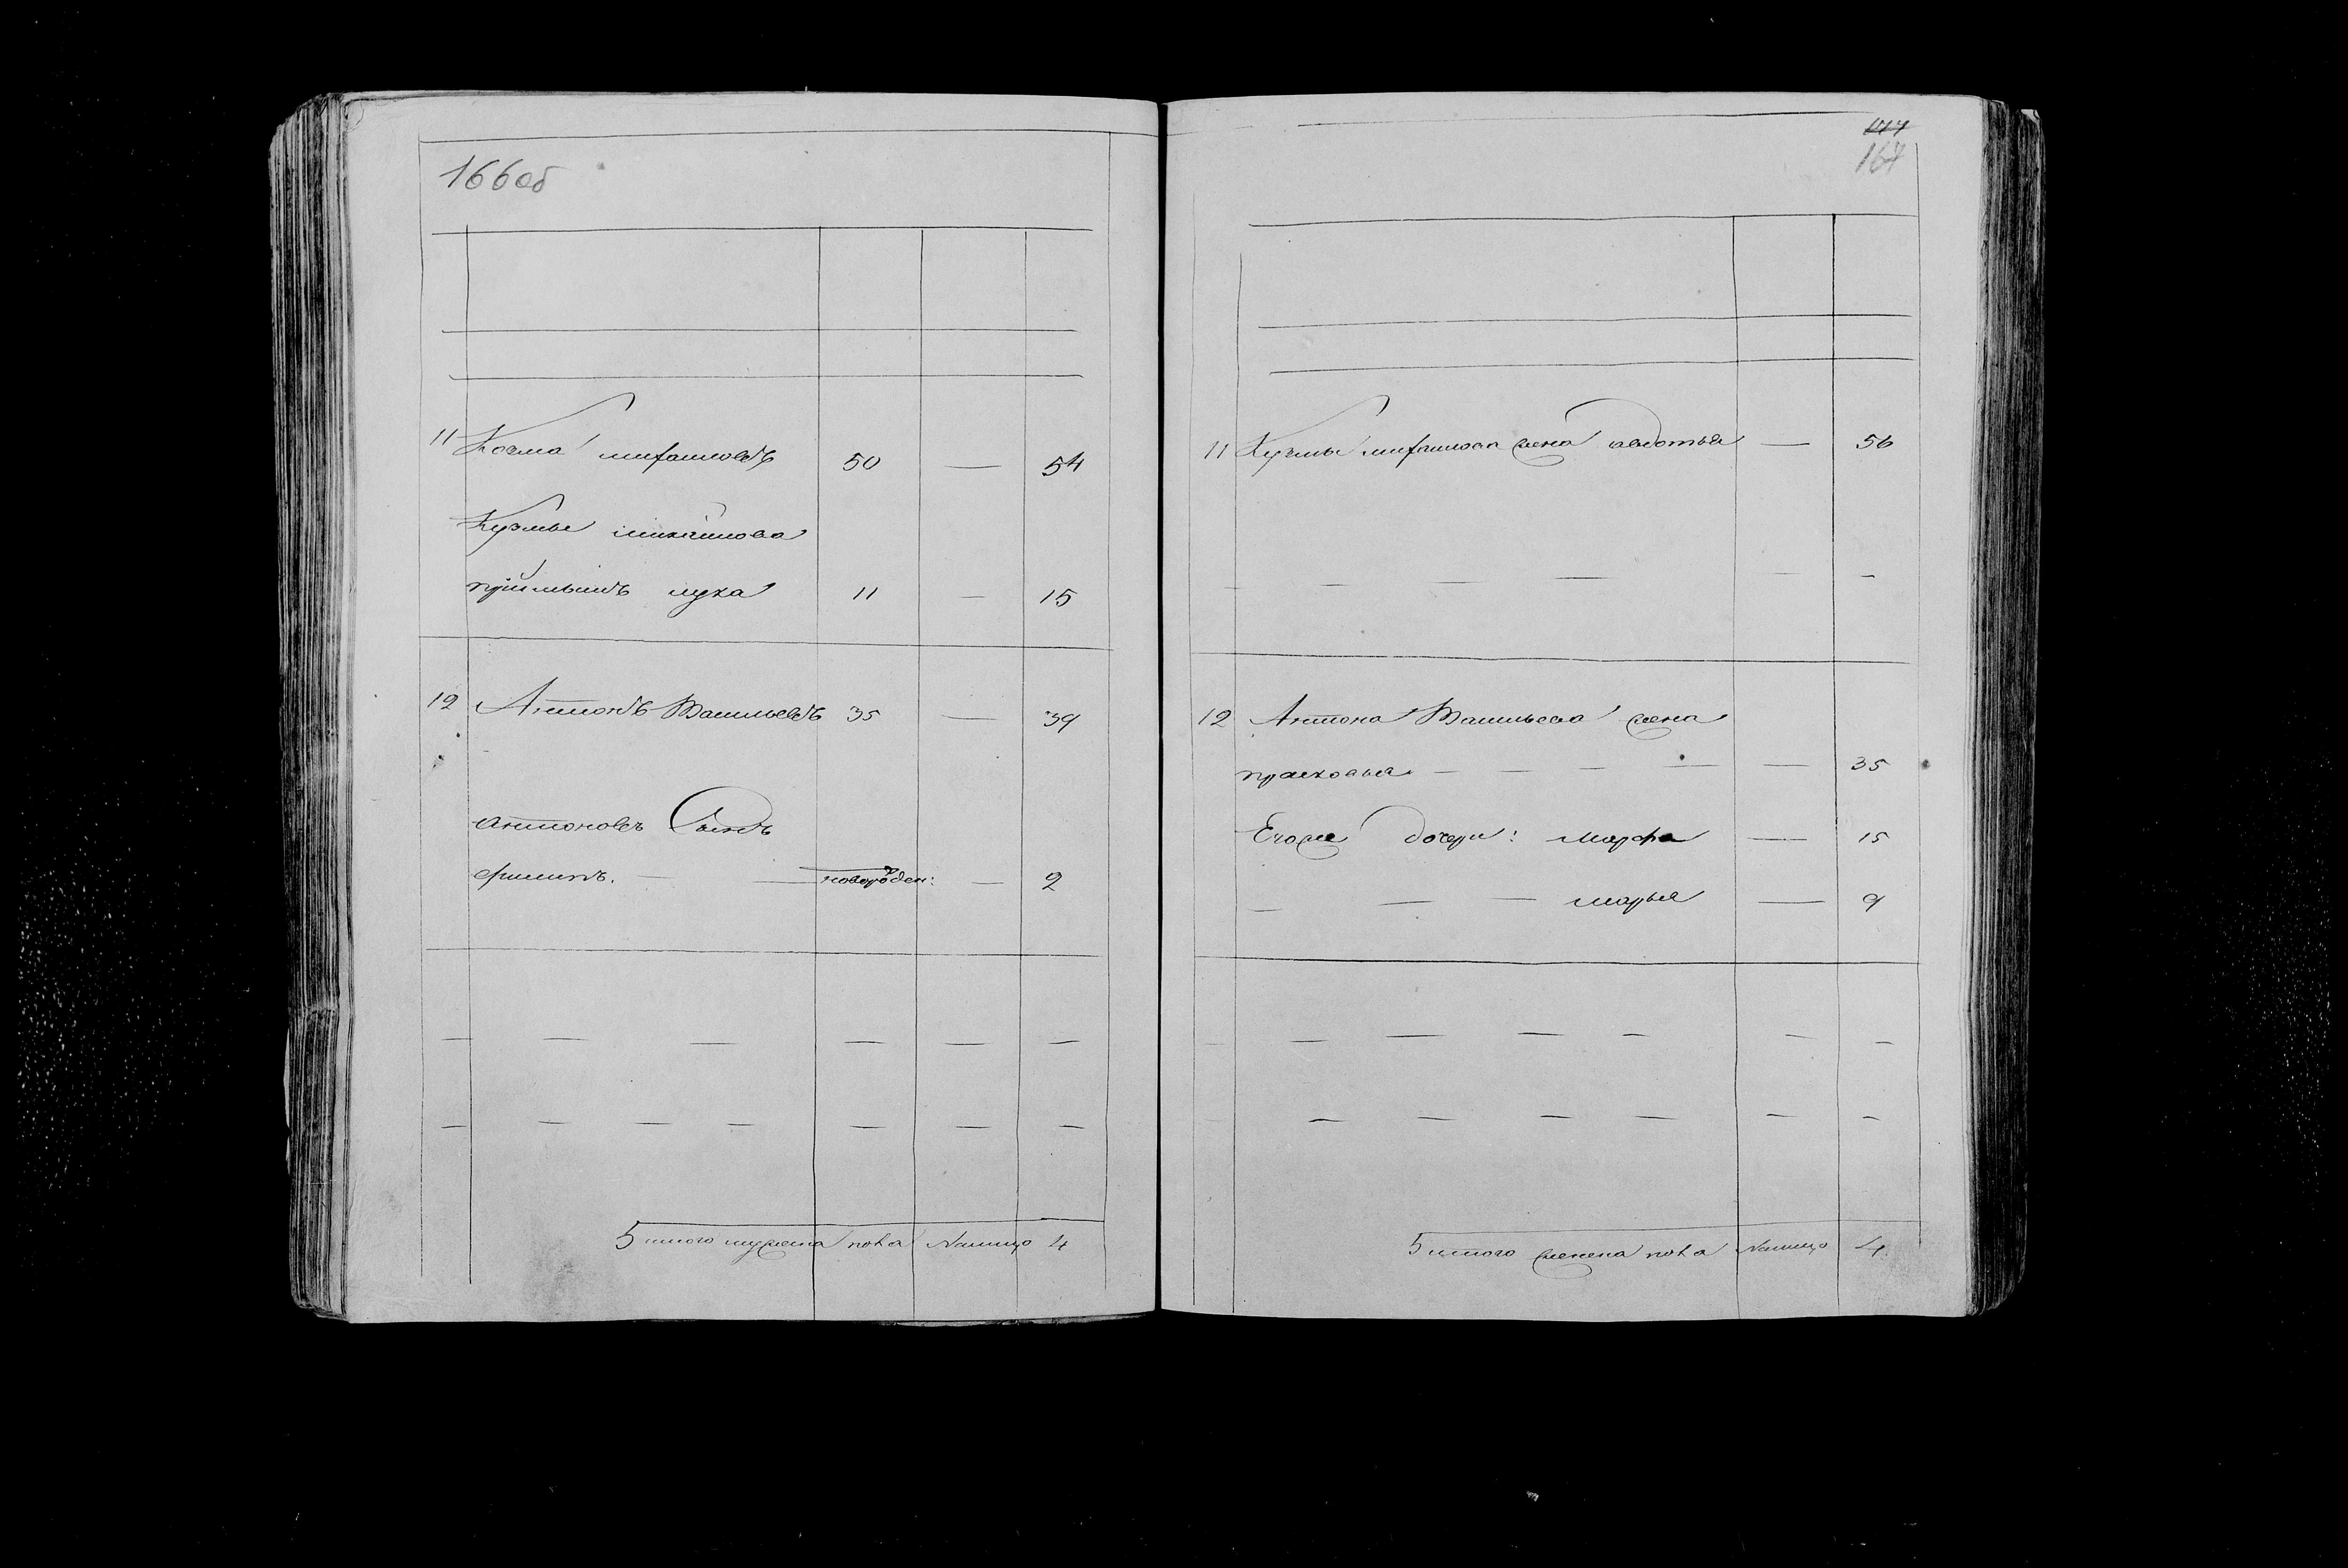 166об
11 Козма Михайловъ 50 — 54
Кузмы Михайлова
приймышъ лука 11 — 15
12 Антонъ Васильевъ 35 — 39
Антоновъ Сынъ
филипъ. — — новорожден: — 2
Итого мужеска пола Налицо 4
167
11 Кузмы михайлова жена авдотья — 56
12 Антона Васильева жена
прасковья — — — — — 35
Егоже дочери: Марфа — 15
— — — марья — 9
Итого женска пола Налицо 4